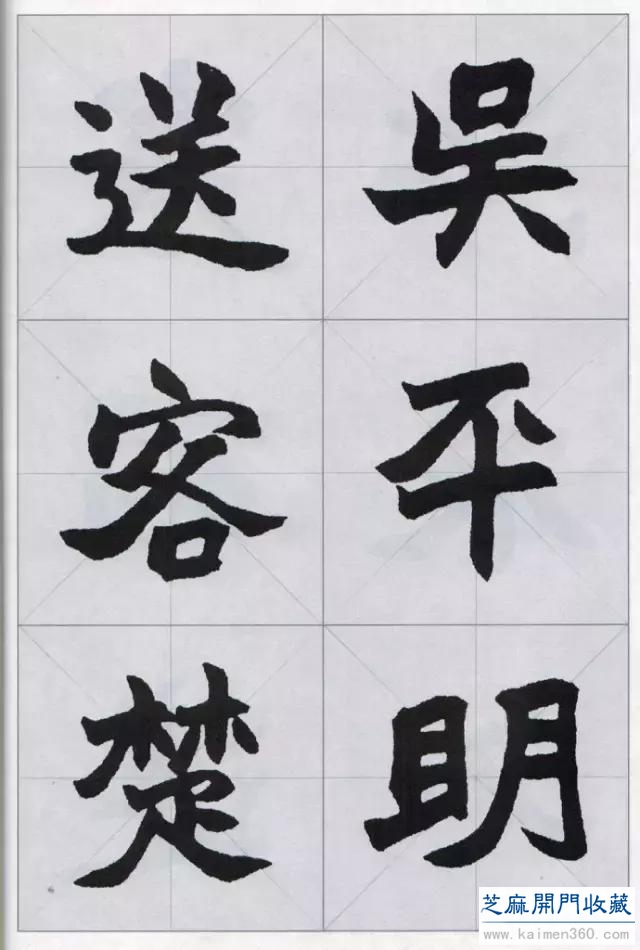 吳平明
送客楚
芝麻開門收藏
www.kaimen360.com